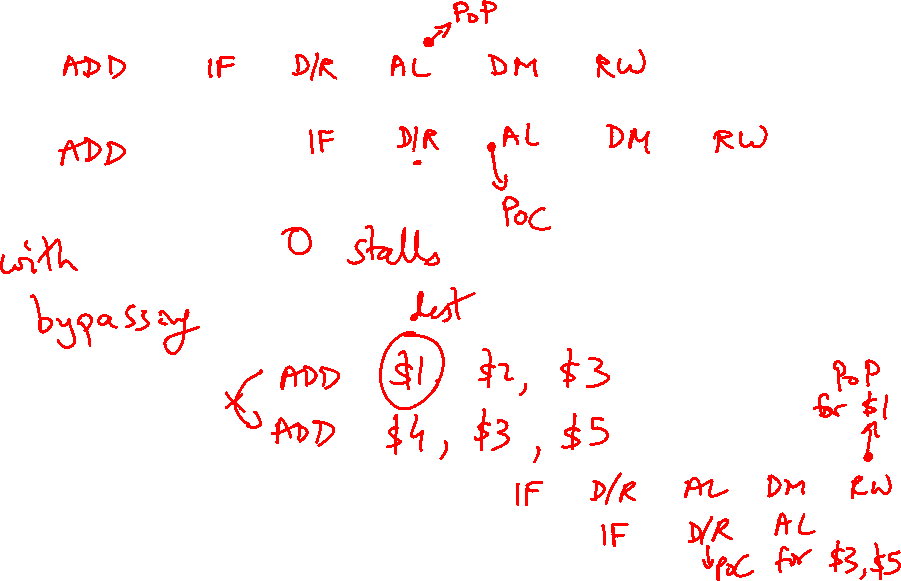 PoP
ADD IF D/R AL DM RW
ADD IF D/R AL DM RW
PoC
with bypassing
0 stalls
dest
ADD $1 $2, $3
ADD $4, $3, $5
PoP
for $1
IF D/R AL DM RW
IF D/R AL
PoC for $3, $5